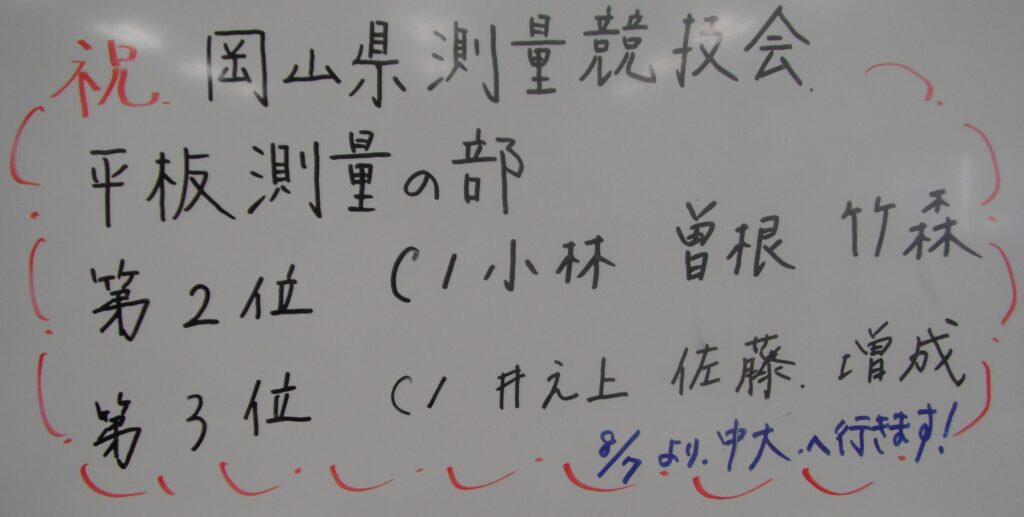 祝 岡山県測量競技会
平板測量の部
第2位 C1 小林 曽根 竹森
第3位 C1 井之上 佐藤 増成
8/7より、中大へ行きます!